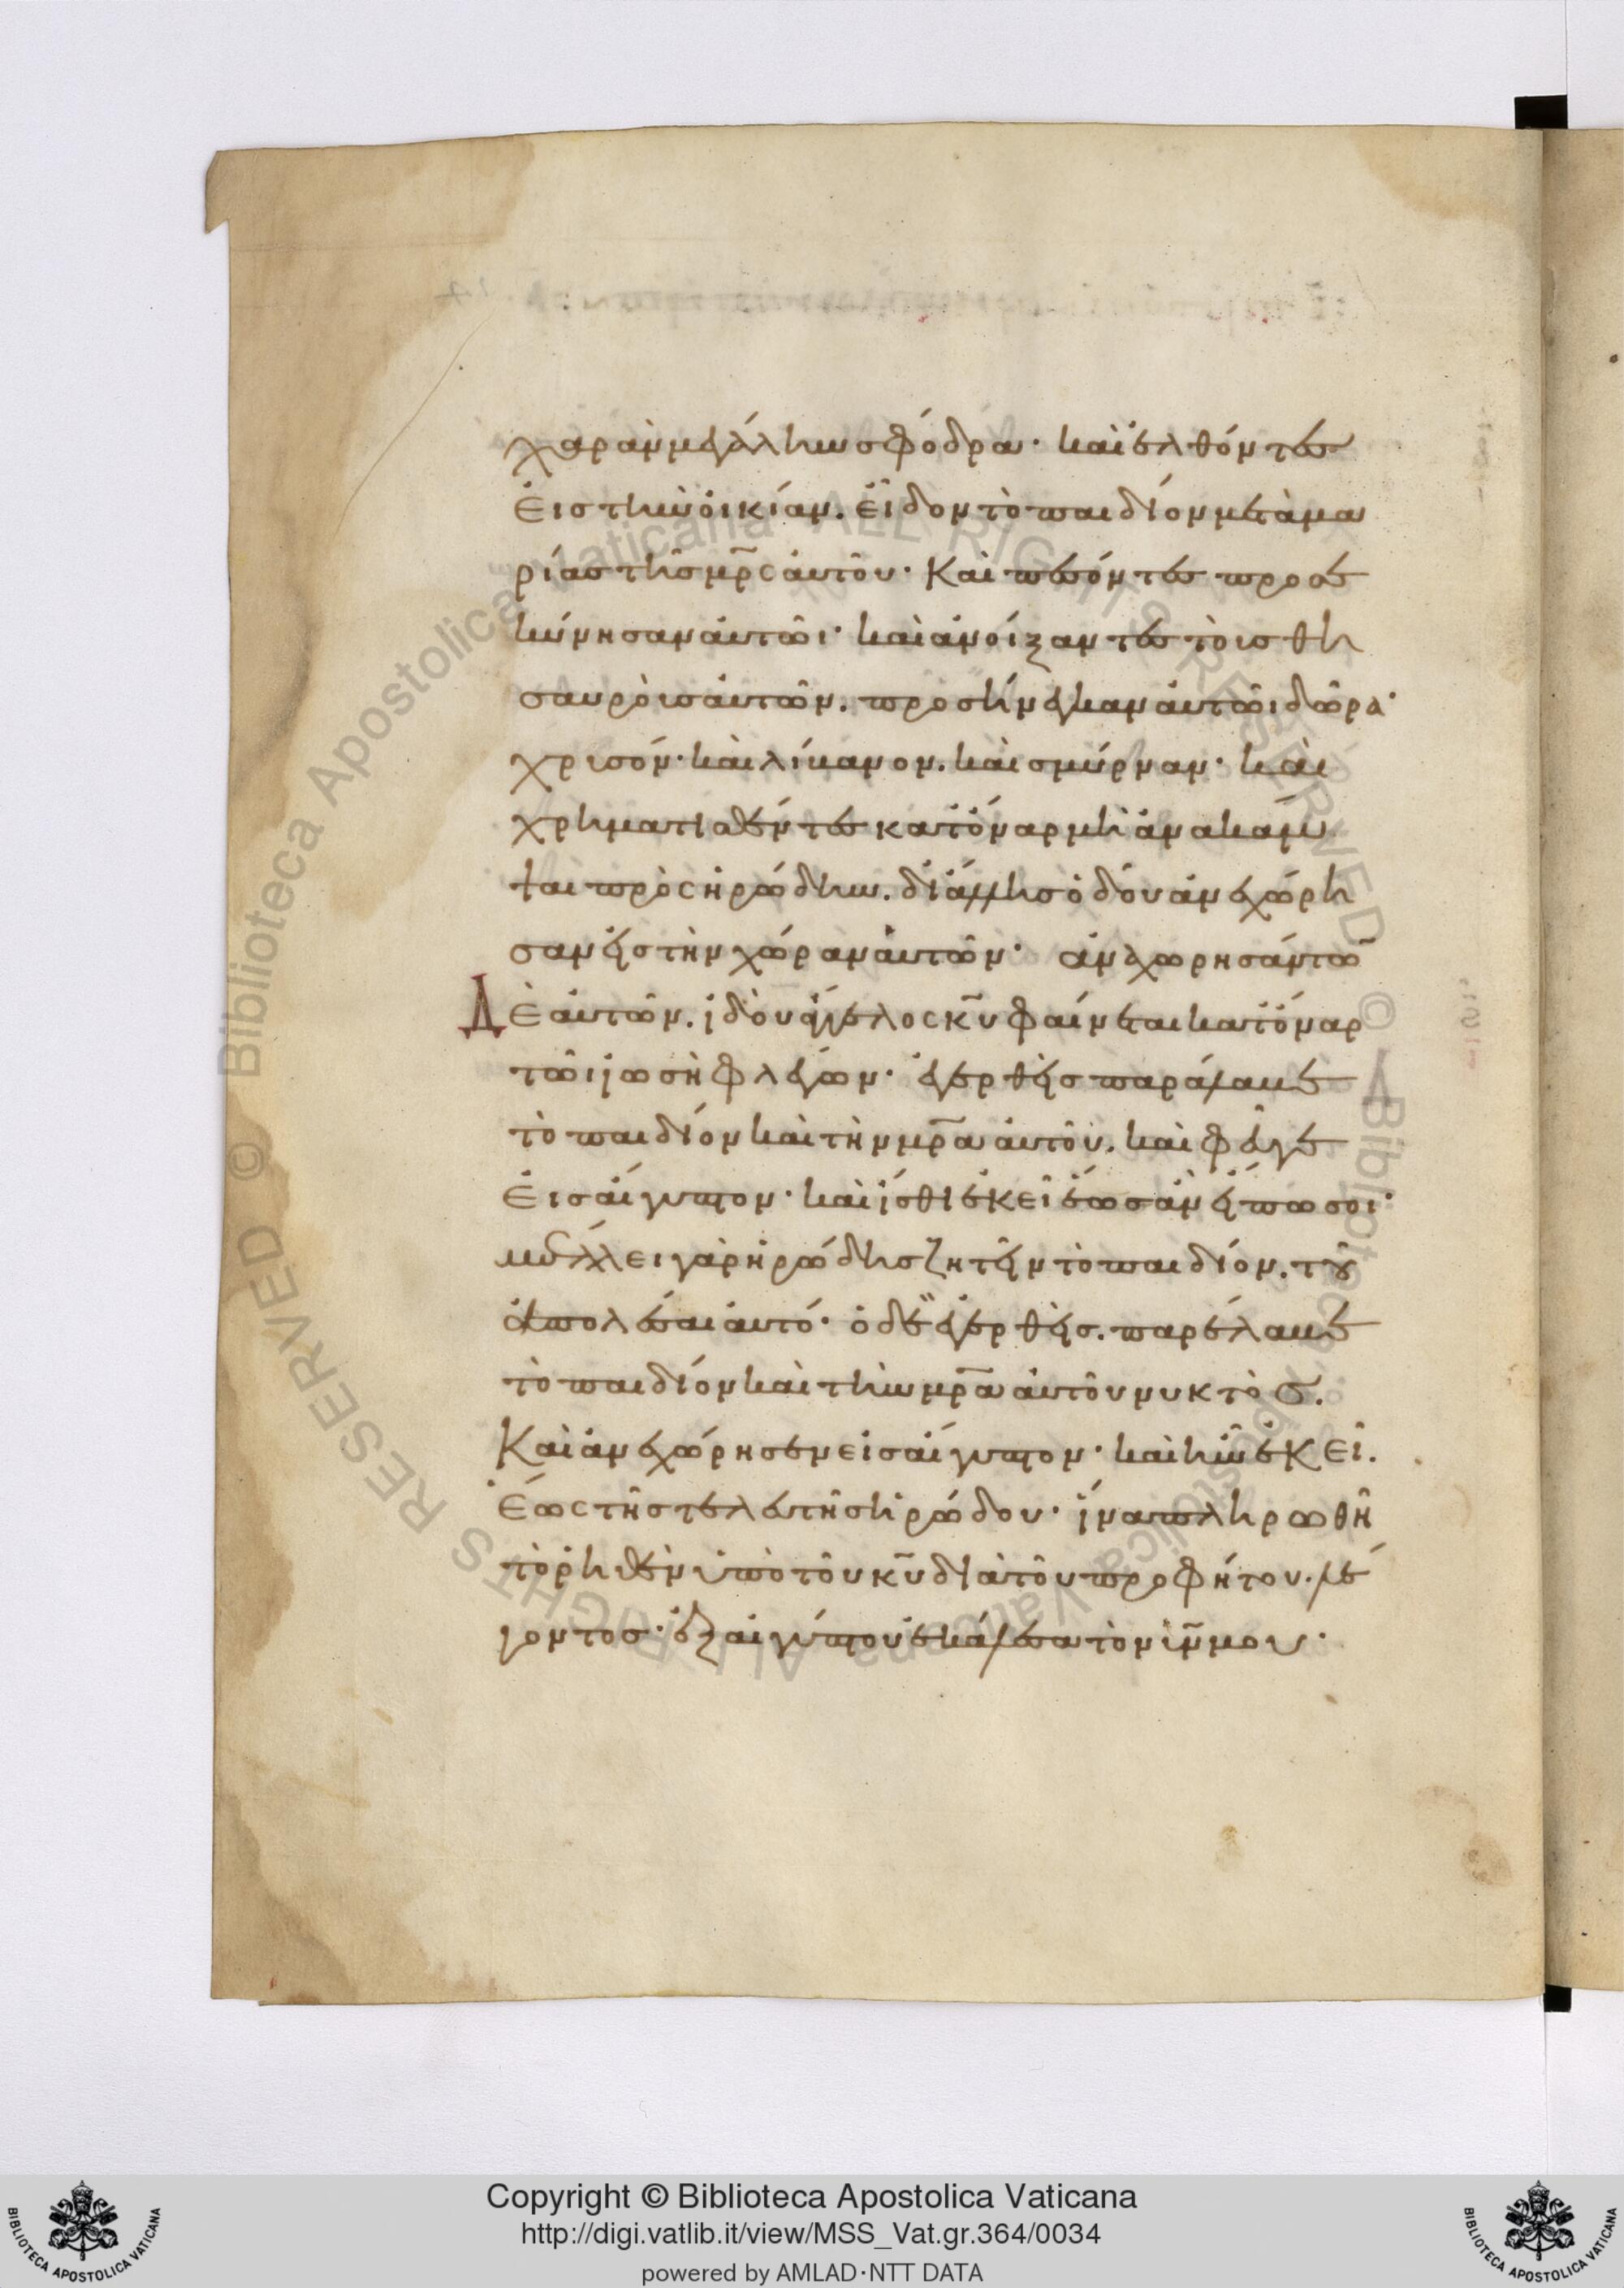 χαρὰν μεγάλην σφόδρα· καὶ ἐλθόντες
εἰς τὴν οἰκίαν. εἶδον τὸ παιδίον μετὰ μα
ρίας τῆς μρ̅ς αὐτοῦ· Καὶ πεσόντες προσε
κύνησαν αὐτῶι· καὶ ἀνοίξαντες τοὺς θη
σαυροὺς αὐτῶν. προσήνεγκαν αὐτῶι δῶρα·
χρυσόν· καὶ λίβανον. καὶ σμύρναν· καὶ
χρηματισθέντες κατ὾ναρ μὴ ἀνακάμψαι
πρὸς ἡρώδην. δι᾽ ἄλλης ὁδοῦ ἀνεχώρη
σαν εἰς τὴν χώραν αὐτῶν· ἀναχωρησάντων
Δὲ αὐτῶν. ἰδοὺ ἄγγελος κ̅υ φαίνεται κατ᾽ ὄναρ
τῶι ἰωσὴφ λέγων· ἐγερθεὶς παράλαβε
τὸ παιδίον καὶ τὴν μρ̅α αὐτοῦ. καὶ φεῦγε
εἰς αἴγυπτον· καὶ ἴσθι ἐκεῖ ἕως ἂν εἴπω σοι·
μέλλει γὰρ ἡρώδης ζητεῖν τὸ παιδίον. τοῦ
ἀπολέσαι αὐτό· ὁ δὲ ἐγερθεὶς. παρέλαβε
τὸ παιδίον καὶ τὴν μρ̅α αὐτοῦ νυκτὸς.
Καὶ ἀνεχώρησεν εἰς αἴγυπτον· καὶ ἦν ἐκεῖ.
ἕως τῆς τελευτῆς ἡρώδου· ἵνα πληρωθῆ
τὸ ῥηθὲν ὑπὸ τοῦ κ̅υ διὰ τοῦ προφήτου. λέ
γοντος· ἐξ αἰγύπτου ἐκάλεσα τὸν υ̅ν μου·
Copyright © Biblioteca Apostolica Vaticana
http://digi.vatlib.it/view/MSS_Vat.gr.364/0034
powered by AMLAD·NTT DATA